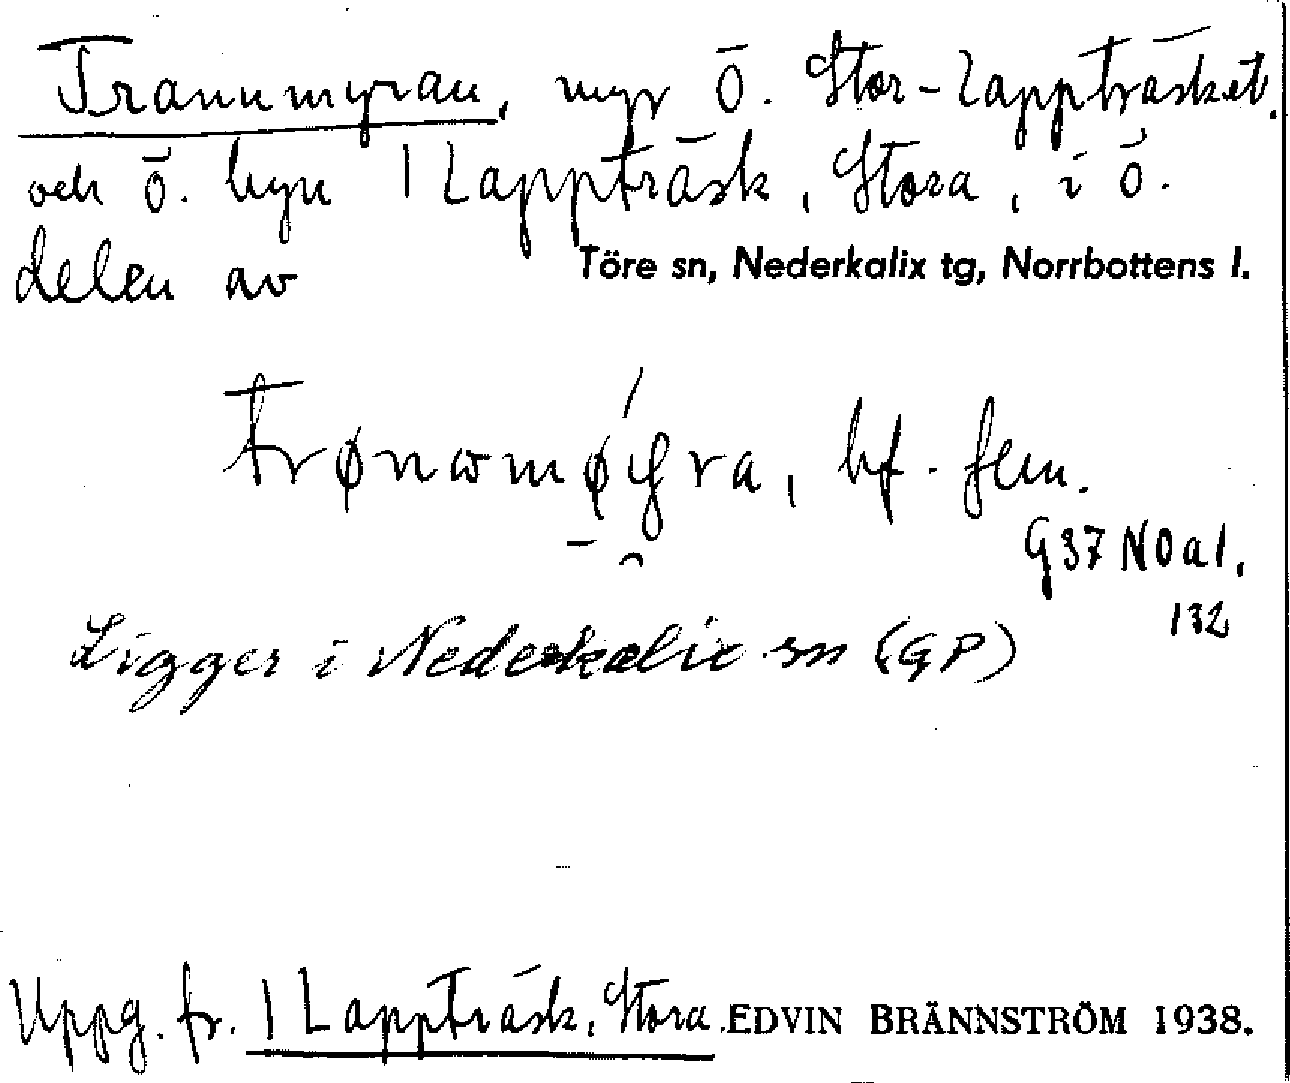 Tranumyran, myr Ö. Stor-Lappträsket
och ö. byn 1 Lappträsk, Stora, i ö.
delen av Töre sn, Nederkalix tg, Norrbottens l.
bf. fem.
G37 NO a1,
132
Ligger i Nederkalix sn (GP)
Uppg. fr. 1 Lappträsk, Stora. EDVIN BRÄNNSTRÖM 1938.